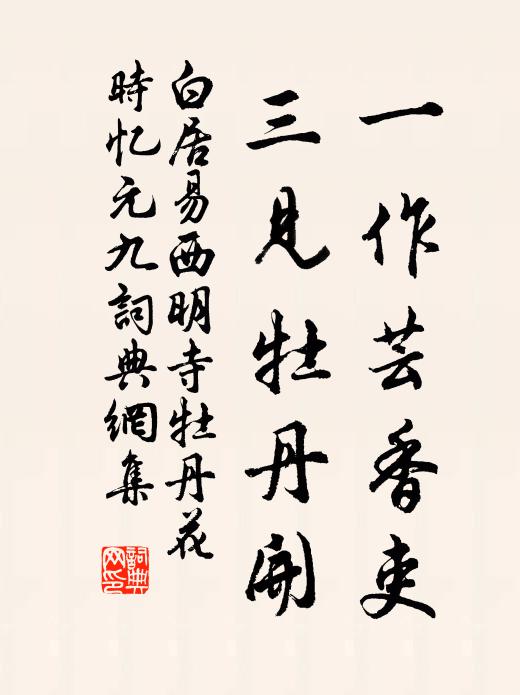 一作芸香吏
三見牡丹開
白居易西明寺牡丹花
時忆元九詞典網集
詞典
网印